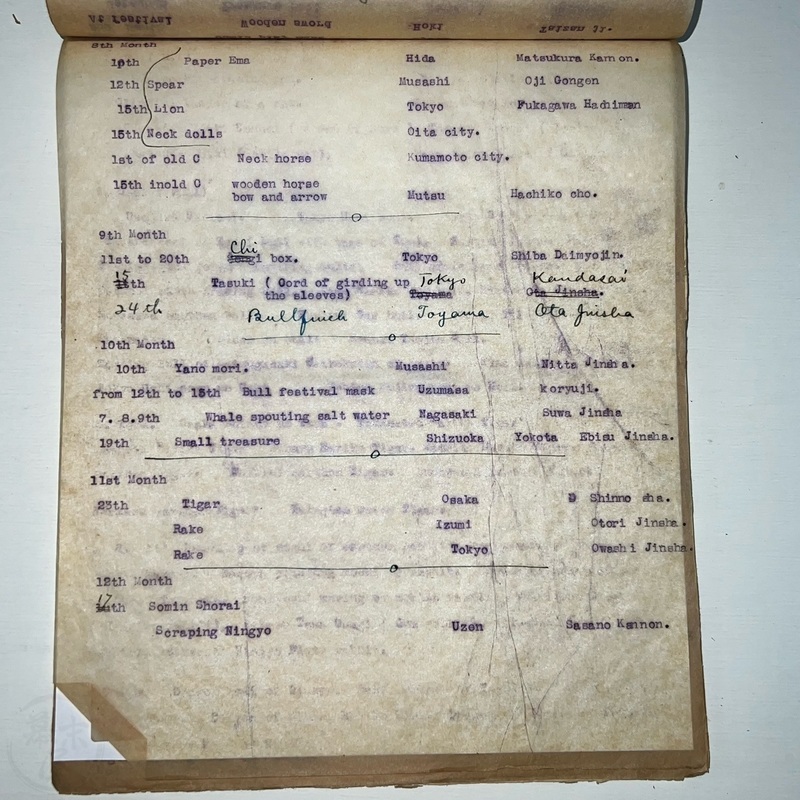 At Festival Wooden sword Hoki Taisan Ji.
8th Month
10th Paper Ema Hida Matsukura Kamnon.
12th Spear Musashi Oji Gongen
15th Lion Tokyo Fukagawa Hachiman
15th Neck dolls Oita city.
1st of old C Neck horse Kumamoto city.
15th inold C wooden horse
bow and arrow Mutsu Hachiko cho.
9th Month
Chi
11st to 20th i box. Tokyo Shiba Daimyojin.
15th Tasuki ( Cord of girding up Tokyo Kandasai
the sleeves) Toyama Ota Jinsha.
24th Bullfinch Toyama Ota Jinsha
10th Month
10th Yano mori. Musashi Nitta Jinsha.
from 12th to 15th Bull festival mask Uzumasa koryuji.
7. 8.9th Whale spouting salt water Nagasaki Suwa Jinsha
19th Small treasure Shizuoka Yokota Ebisu Jinsha.
11st Month
23th Tigar Osaka Shinno sha.
Rake Izumi Otori Jinsha.
Rake Tokyo Owashi Jinsha.
12th Month
17th Somin Shorai
Scraping Ningyo Uzen Sasano Kannon.